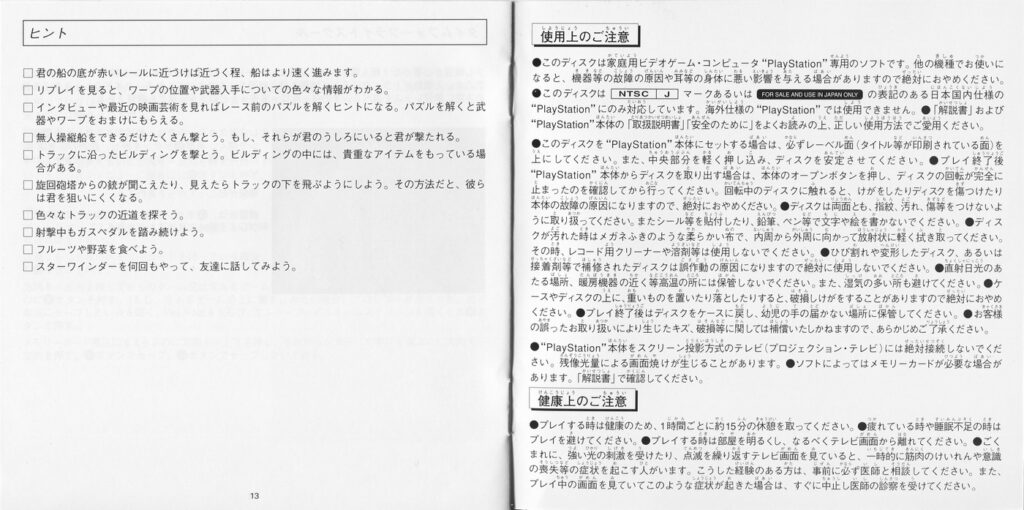 ヒント
□ 君の船の底が赤いレールに近づけば近づく程、船はより速く進みます。
□ リプレイを見ると、ワープの位置や武器入手についての色々な情報がわかる。
□ インタビューや最近の映画芸術を見ればレース前のパズルを解くヒントになる。パズルを解くと武
器やワープをおまけにもらえる。
□ 無人操縦船をできるだけたくさん撃とう。もし、それらが君のうしろにいると君が撃たれる。
□ トラックに沿ったビルディングを撃とう。ビルディングの中には、貴重なアイテムをもっている場
合がある。
□ 旋回砲塔からの銃が聞こえたり、見えたらトラックの下を飛ぶようにしよう。その方法だと、彼ら
は君を狙いにくくなる。
□ 色々なトラックの近道を探そう。
□ 射撃中もガスペダルを踏み続けよう。
□ フルーツや野菜を食べよう。
□ スターワインダーを何回もやって、友達に話してみよう。
13
使用上のご注意
●このディスクは家庭用ビデオゲーム・コンピュータ“PlayStation”専用のソフトです。他の機種でお使いに
なると、機器等の故障の原因や耳等の身体に悪い影響を与える場合がありますので絶対におやめください。
●このディスクは NTSC J マークあるいは FOR SALE AND USE IN JAPAN ONLY の表記のある日本国内仕様の
“PlayStation”にのみ対応しています。海外仕様の“PlayStation”では使用できません。●「解説書」および
“PlayStation”本体の「取扱説明書」「安全のために」をよくお読みの上、正しい使用方法でご愛用ください。
●このディスクを“PlayStation”本体にセットする場合は、必ずレーベル面（タイトル等が印刷されている面）を
上にしてください。また、中央部分を軽く押し込み、ディスクを安定させてください。●プレイ終了後
“PlayStation”本体からディスクを取り出す場合は、本体のオープンボタンを押し、ディスクの回転が完全に
止まったのを確認してから行ってください。回転中のディスクに触れると、けがをしたりディスクを傷つけたり
本体の故障の原因になりますので、絶対におやめください。●ディスクは両面とも、指紋、汚れ、傷等をつけないよ
うに取り扱ってください。またシール等を貼付したり、鉛筆、ペン等で文字や絵を書かないでください。●ディス
クが汚れた時はメガネふきのような柔らかい布で、内周から外周に向かって放射状に軽く拭き取ってください。
その時、レコード用クリーナーや溶剤等は使用しないでください。●ひび割れや変形したディスク、あるいは
接着剤等で補修されたディスクは誤作動の原因になりますので絶対に使用しないでください。●直射日光のあ
たる場所、暖房機器の近く等高温の所には保管しないでください。また、湿気の多い所も避けてください。●ケ
ースやディスクの上に、重いものを置いたり落としたりすると、破損しけがをすることがありますので絶対におやめ
ください。●プレイ終了後はディスクをケースに戻し、幼児の手の届かない場所に保管してください。●お客様
の誤ったお取り扱いにより生じたキズ、破損等に関しては補償いたしかねますので、あらかじめご了承ください。
●“PlayStation”本体をスクリーン投影方式のテレビ（プロジェクション・テレビ）には絶対接続しないでくだ
さい。残像光量による画面焼けが生じることがあります。●ソフトによってはメモリーカードが必要な場合が
あります。「解説書」で確認してください。
健康上のご注意
●プレイする時は健康のため、1時間ごとに約15分の休憩を取ってください。●疲れている時や睡眠不足の時は
プレイを避けてください。●プレイする時は部屋を明るくし、なるべくテレビ画面から離れてください。●ごく
まれに、強い光の刺激を受けたり、点滅を繰り返すテレビ画面を見ていると、一時的に筋肉のけいれんや意識
の喪失等の症状を起こす人がいます。こうした経験のある方は、事前に必ず医師と相談してください。また、
プレイ中の画面を見ていてこのような症状が起きた場合は、すぐに中止し医師の診察を受けてください。